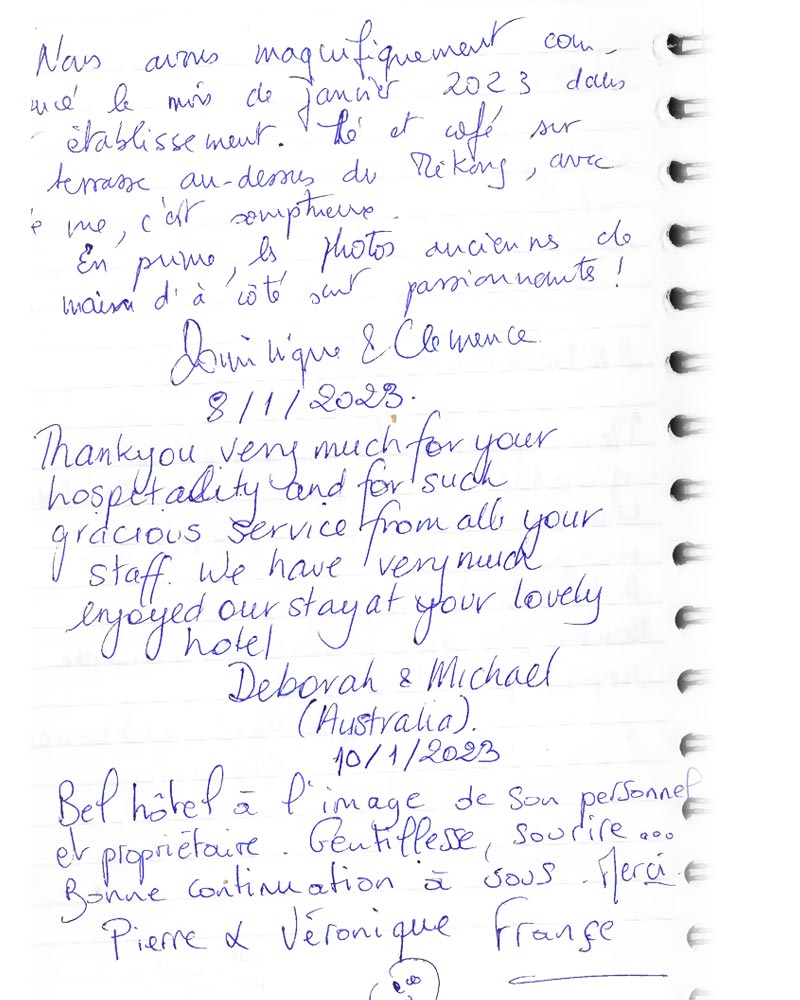 Nous avons magnifiquement com-
ncé le mois de janvier 2023 dans
établissement. Thé et café sur
terrasse au-dessus du Mékong, avec
vue, c'est somptueux.
En prime, les photos anciennes de
maison d'à côté sont passionnantes !
Dominique & Clémence
8/1/2023.
Thankyou very much for your
hospitality and for such
gracious service from all your
staff. We have very much
enjoyed our stay at your lovely
hotel
Deborah & Michael
(Australia).
10/1/2023
Bel hôtel à l'image de son personnel
et propriétaire. Gentillesse, sourire...
Bonne continuation à vous. Merci.
Pierre & Véronique France